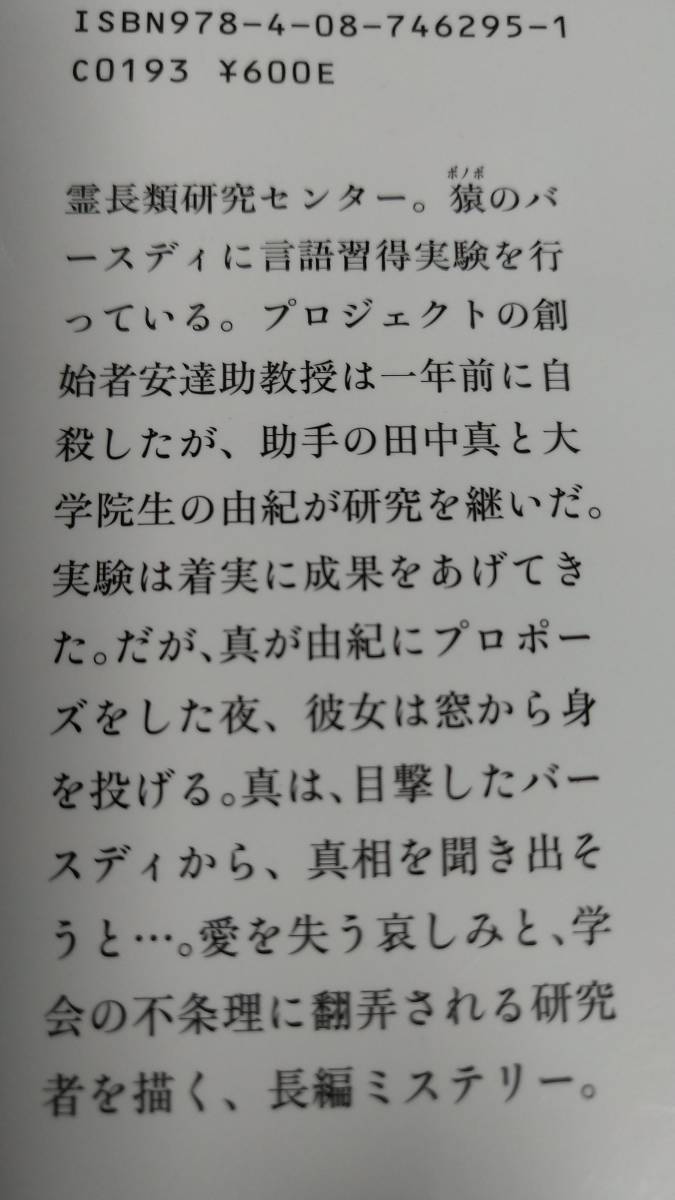 ISBN978-4-08-746295-1
C0193 ¥600E
ボノボ
霊長類研究センター。猿のバ
ースディに言語習得実験を行
っている。プロジェクトの創
始者安達助教授は一年前に自
殺したが、助手の田中真と大
学院生の由紀が研究を継いだ。
実験は着実に成果をあげてき
た。だが、真が由紀にプロポー
ズをした夜、彼女は窓から身
を投げる。真は、目撃したバー
スディから、真相を聞き出そ
うと…。愛を失う哀しみと、学
会の不条理に翻弄される研究
者を描く、長編ミステリー。